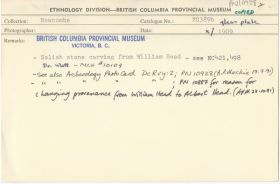 ETHNOLOGY DIVISION—BRITISH COLUMBIA PROVINCIAL MUSEUM PN10928
COPIED
Collection: Newcombe Catalogue No: EC389b glass plate
Photographer: Date: /s/ 1909
Remarks: BRITISH COLUMBIA PROVINCIAL MUSEUM
VICTORIA, B. C.
- Salish stone carving from William Head — see EC421,498
Dr. Watt - Neg #10109
- See also Archaeology Photo Card DcRv:2; PN 10928 (A.Mackie 13.7.91)
" " " " " ; PN 10887 for reason for
changing provenance from William Head to Albert Head. (APM 23.10.91)